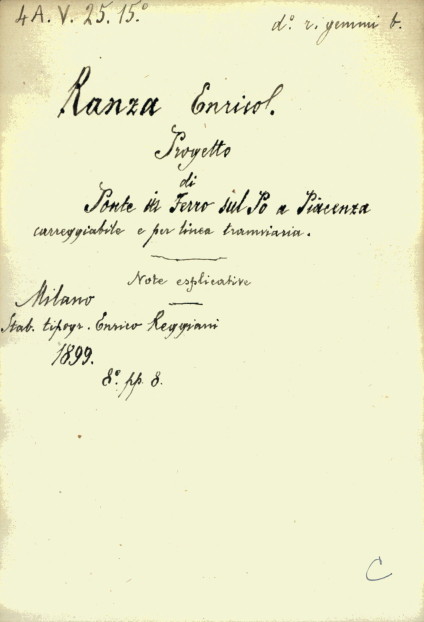 4 A. V. 25. 15.°
Ranza Enrico.
Progetto
di
Ponte in Ferro sul Po a Piacenza
carreggiabile e per linea tramviaria.
Note esplicative
Milano
Stab. tipogr. Enrico Reggiani
1899.
8.° pp. 8.
C